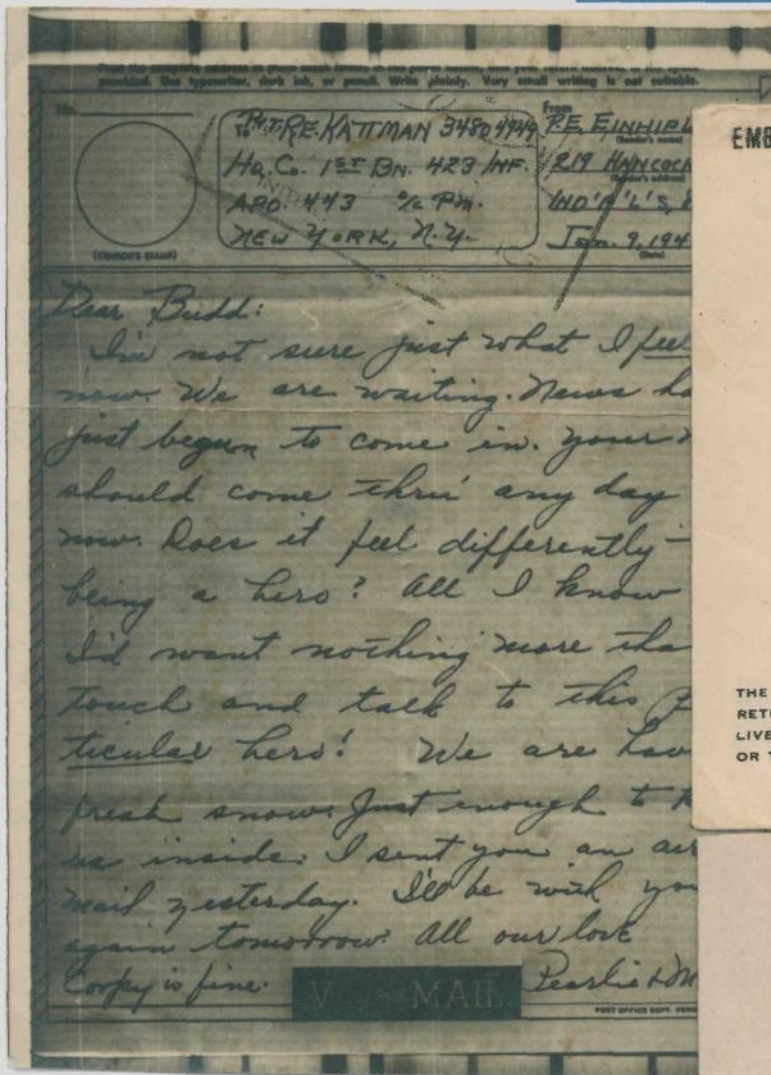 provided. Use typewriter, dark ink, or pencil. Write plainly. Very small writing is not suitable.
No.
To PVT. R.E. KATTMAN 34804949
Hq. Co. 1ST Bn. 423 INF.
APO. 443 % P.M.
NEW YORK, N.Y.
(CENSOR'S STAMP)
From
P.E. EINHIPL
(Sender's name)
219 HANCOCK
(Sender's address)
IND'N'L'S,
Jan. 9, 194
(Date)
Dear Budd:
I'm not sure just what I feel
now. We are waiting. News ha
just begun to come in. Your
should come thru' any day
now. Does it feel differently—
being a hero? All I know
I'd want nothing more tha
touch and talk to this p
ticular hero! We are hav
fresh snow. Just enough to k
us inside. I sent you an air
mail yesterday. I'll be with you
again tomorrow. All our love
Corky is fine. Pearlie & M
V - MAIL
POST OFFICE DEPT. PERM
EMB
THE
RETU
LIVE
OR